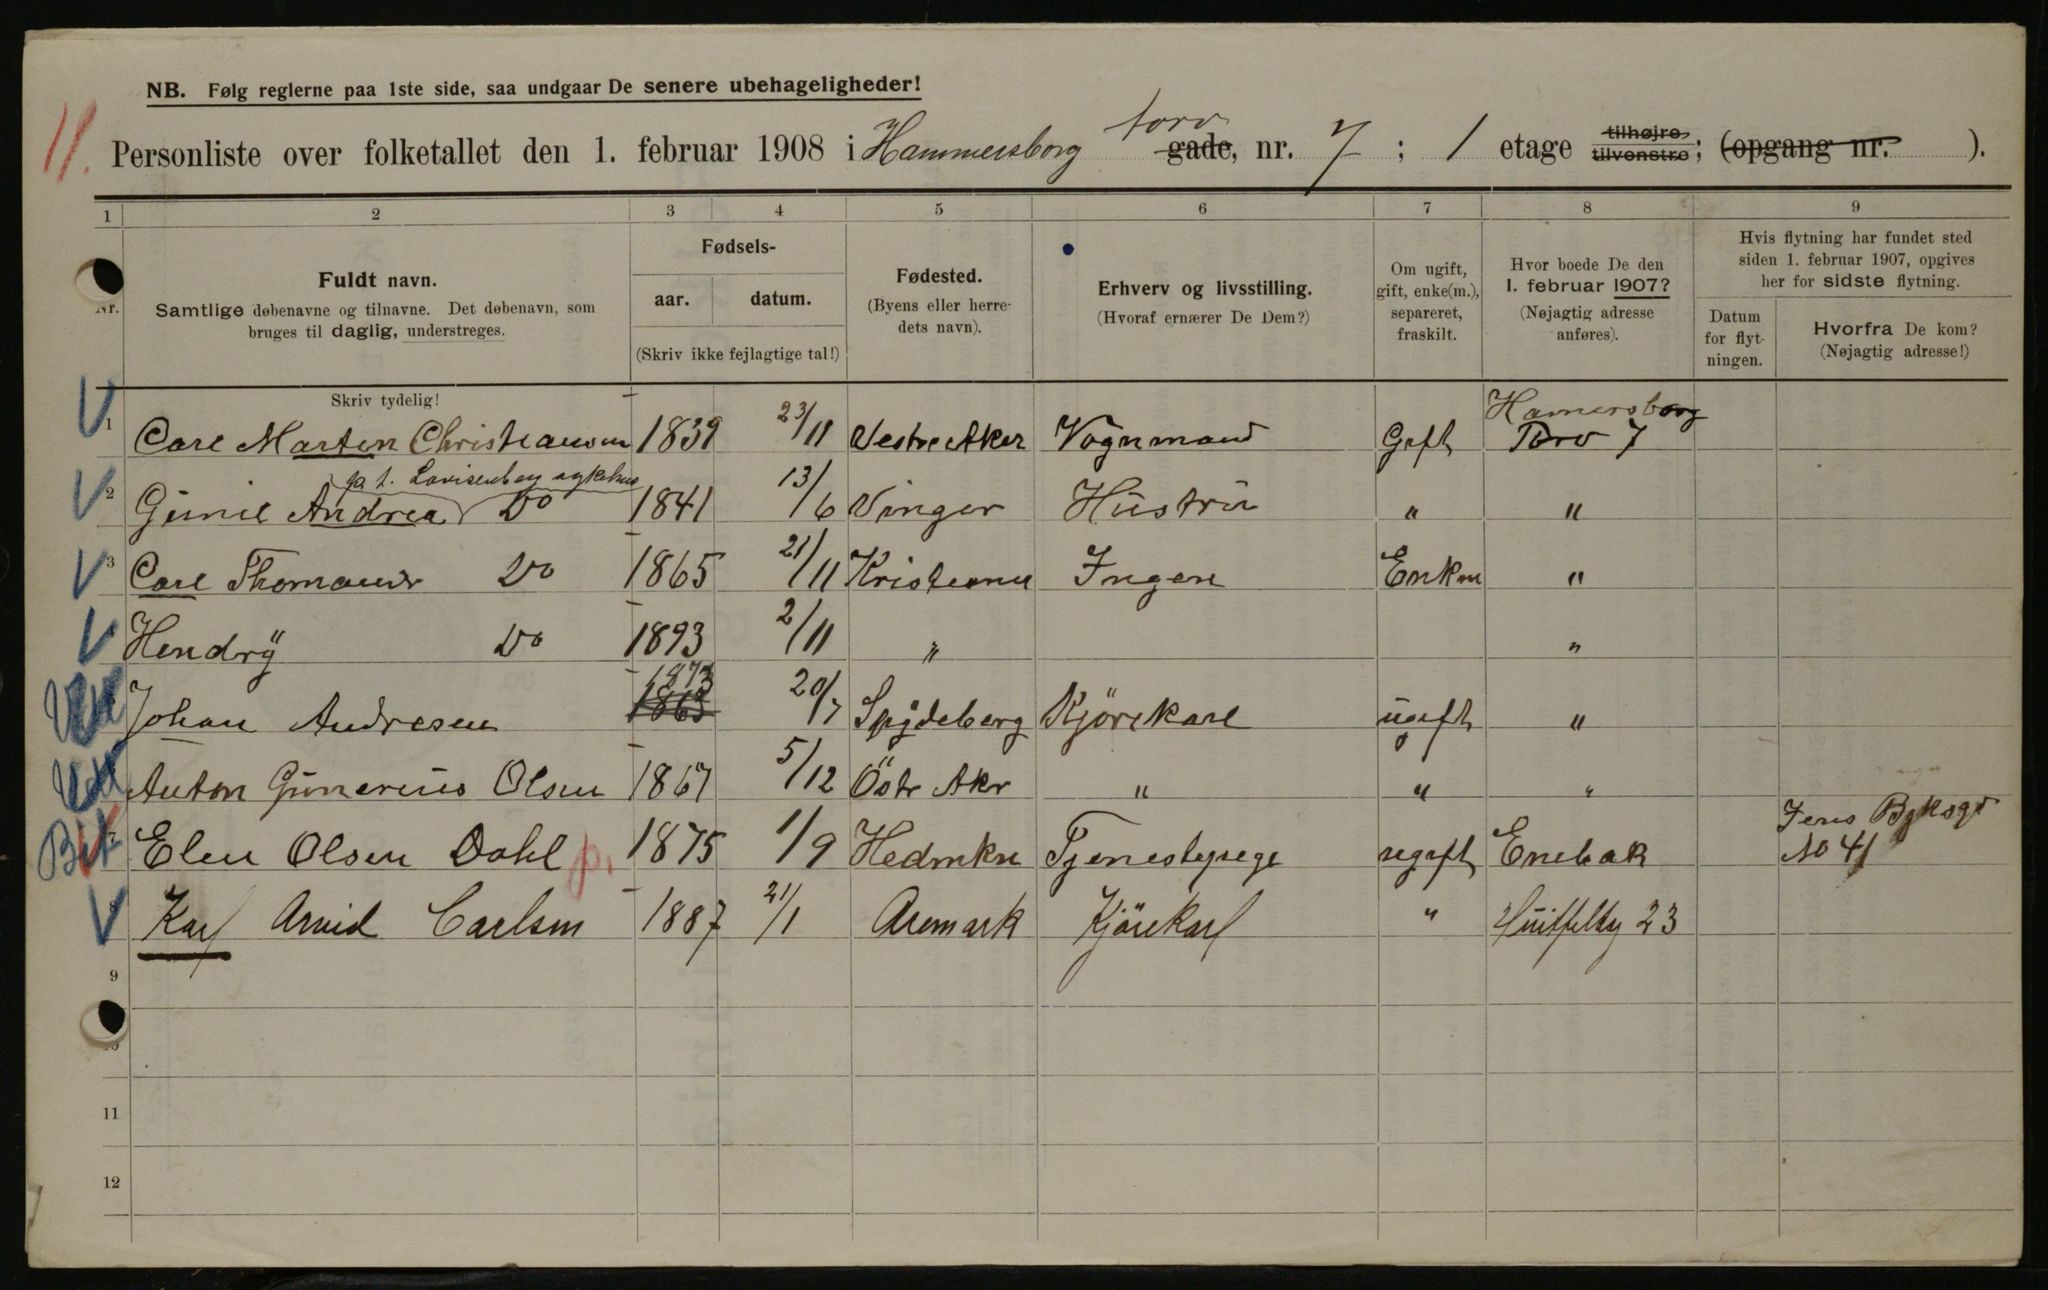 NB. Følg reglerne paa 1ste side, saa undgaar De senere ubehageligheder!
11.
Personliste over folketallet den 1. februar 1908 i Hammersborg torv gade, nr. 7 ; 1 etage tilhøjre tilvenstre; (opgang nr. ).
1 2 3 4 5 6 7 8 9
Nr.
Fuldt navn.
Samtlige døbenavne og tilnavne. Det døbenavn, som
bruges til daglig, understreges.
Fødsels-
aar. datum.
(Skriv ikke fejlagtige tal!)
Fødested.
(Byens eller herre-
dets navn).
Erhverv og livsstilling.
(Hvoraf ernærer De Dem?)
Om ugift,
gift, enke(m.),
separeret,
fraskilt.
Hvor boede De den
1. februar 1907?
(Nøjagtig adresse
anføres).
Hvis flytning har fundet sted
siden 1. februar 1907, opgives
her for sidste flytning.
Datum
for flyt-
ningen.
Hvorfra De kom?
(Nøjagtig adresse!)
Skriv tydelig!
V 1 Carl Marten Christiansen 1839 23/11 Vestre Aker Vognmand Gift Hamersborg Torv 7
pa t. Lovisenberg sykehus
V 2 Gunil Andrea Do 1841 13/6 Vinger Hustru " "
V 3 Carl Thomauds Do 1865 21/11 Kristiania Ingen Enkm "
V Hendrÿ Do 1893 2/11 " "
1873
Johan Andresen 1863 20/7 Spÿdeberg Kjörekarl ugift "
Anton Gunerius Olsen 1867 5/12 Östr Akr " " "
Jens Bjelksgt
7 Elen Olsen Dahl p. 1875 1/9 Hedmken Tjenestepige ugift Enebak No 41
V 8 Karl Arvid Carlsen 1887 21/1 Aremark Kjörekarl " Huitfeltg 23
9
10
11
12